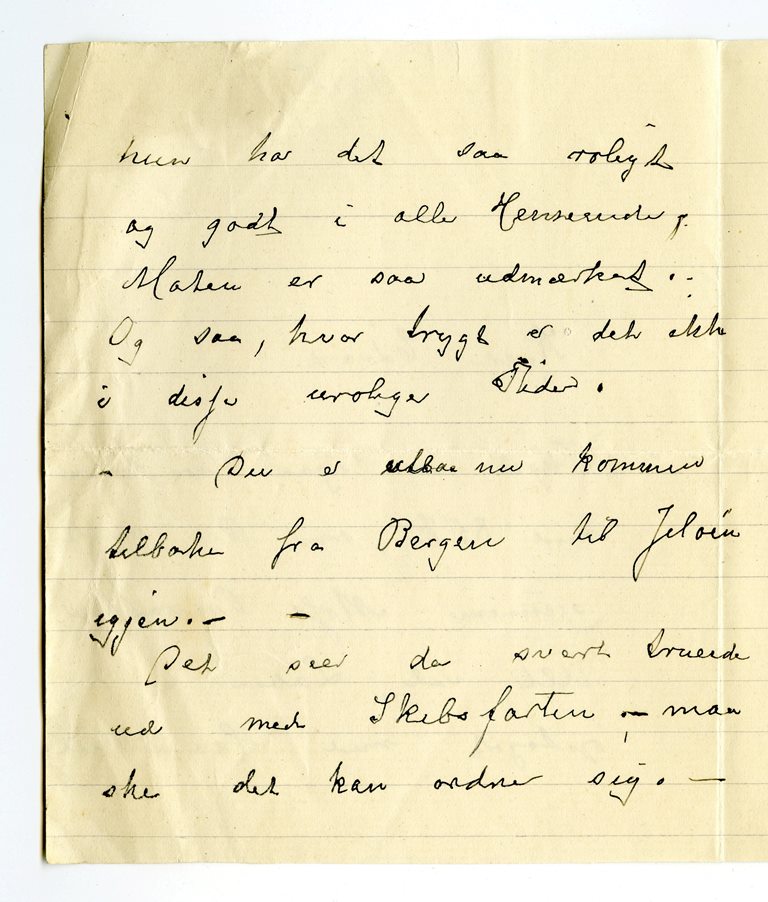 hun har det saa roligt
og godt i alle Henseender.
Maten er saa udmærket. -
Og saa, hvor trygt er det ikke
i disse urolige Tider.
- Du er nu kommen
tilbake fra Bergen til Jeløen
igjen. - -
Det seer da svært truende
ud med Skibsfarten, - maa
ske det kan ordne sig. -